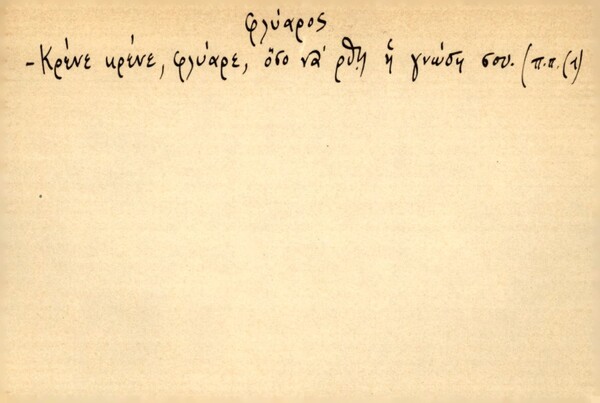 φλύαρος
- Κρένε κρένε, φλύαρε, ὅσο νά ρθῃ ἡ γνώση σου. (π.π. (1)